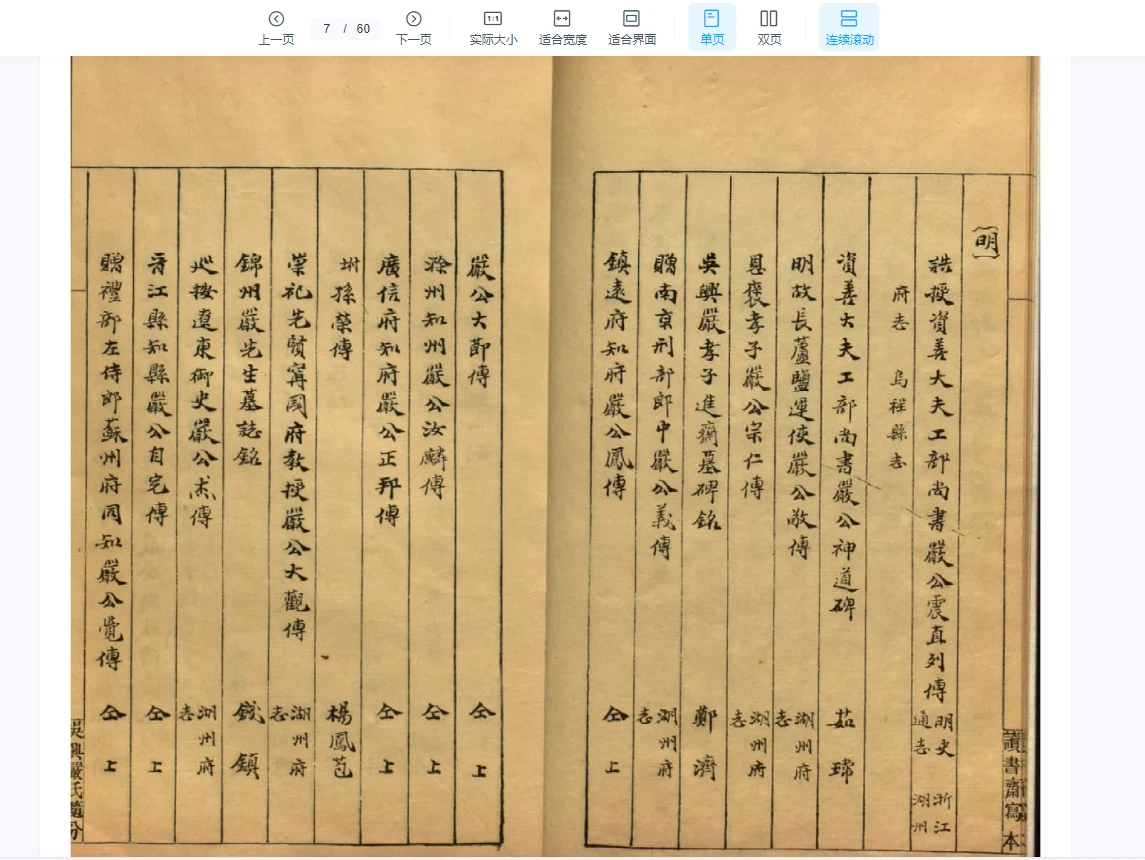 上一页
7 / 60
下一页
实际大小
适合宽度
适合界面
单页
双页
连续滚动
讀書齋寫本
〔明〕
誥授資善大夫工部尚書嚴公震直列傳 明史 浙江通志 湖州
府志 烏程縣志
資善大夫工部尚書嚴公神道碑 茹瑺
明故長蘆鹽運使嚴公敬傳 湖州府志
恩褒孝子嚴公宗仁傳 湖州府志
吳興嚴孝子進齋墓碑銘 鄭濟
贈南京刑部郎中嚴公義傳 湖州府志
鎮遠府知府嚴公鳳傳 仝上
嚴公大節傳 仝上
滁州知州嚴公汝麟傳 仝上
廣信府知府嚴公正邦傳 仝上
坿孫榮傳 楊鳳苞
崇祀先賢寗國府教授嚴公大觀傳 湖州府志
錦州嚴先生墓誌銘 錢鎮
廵按遼東御史嚴公杰傳 湖州府志
晉江縣知縣嚴公自完傳 仝上
贈禮部左侍郎蘇州府同知嚴公覺傳 仝上
吳興嚴氏隨分